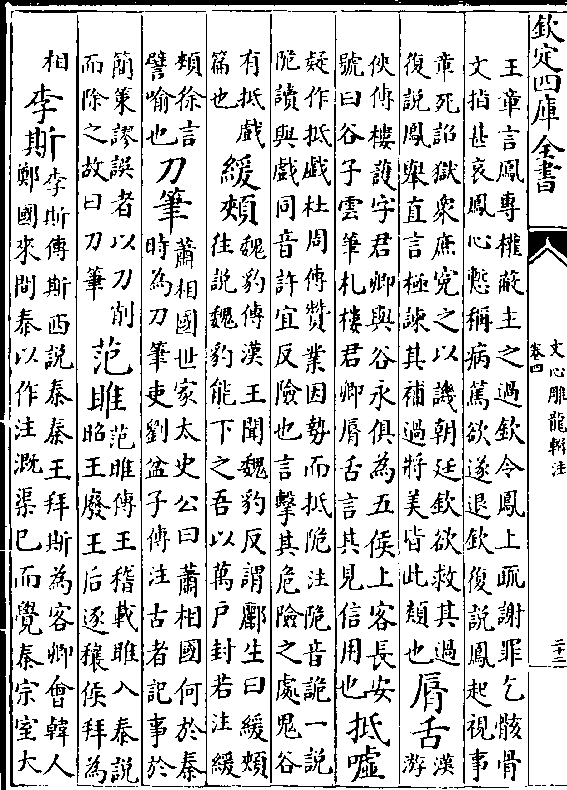 欽定四庫全書
文心雕龍輯注
卷四
二十二
王章言鳳專權蔽主之過欽令鳳上疏謝罪乞骸骨
文指甚哀鳳心慙稱病篤欲遂退欽復說鳳起視事
章死詔獄衆庶寃之以譏朝廷欽欲救其過
復說鳳舉直言極諫其補過將美皆此類也
脣舌
漢
游
俠傳樓護字君卿與谷永俱為五侯上客長安
號曰谷子雲筆札樓君卿脣舌言其見信用也
抵噓
疑作抵戲杜周傳贊業因勢而抵陒注陒音詭一說
陒讀與戲同音許宜反險也言擊其危險之處鬼谷
有抵戲
篇也
緩頰
魏豹傳漢王聞魏豹反謂酈生曰緩頰
往說魏豹能下之吾以萬戶封若注緩
頰徐言
譬喻也
刀筆
蕭相國世家太史公曰蕭相國何於秦
時為刀筆吏劉盆子傳注古者記事於
簡策謬誤者以刀削
而除之故曰刀筆
范雎
范雎傳王稽載雎入秦說
昭王廢王后逐穰侯拜為
相
李斯
李斯傳斯西說秦秦王拜斯為客卿會韓人
鄭國來間秦以作注溉渠已而覺秦宗室大